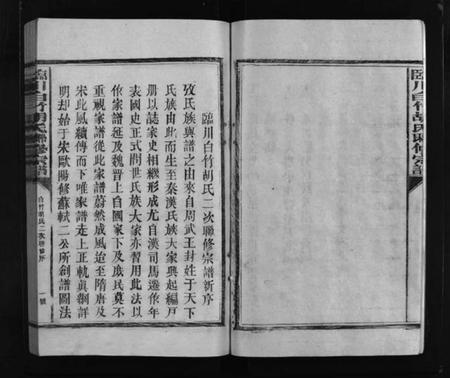 臨川白竹胡氏二次聯修宗譜新序
攷氏族與譜之由來自周武王封姓于天下
氏族由此而生至秦漢氏族大家興起編戶
册以誌家史相繼形成尤自漢司馬遷依年
表國史正式問世氏族大家亦習用此法以
依家譜延及魏晉上自國家下及庶民莫不
重視家譜從此家譜蔚然成風迨至隋唐及
宋此風續傳而下唯家譜走上正軌眞制詳
明却始于宋歐陽修蘇軾二公所創譜圖法
臨川白竹胡氏聯修宗譜
白竹胡氏二次聯修序
一號
臨川白竹胡氏聯修宗譜